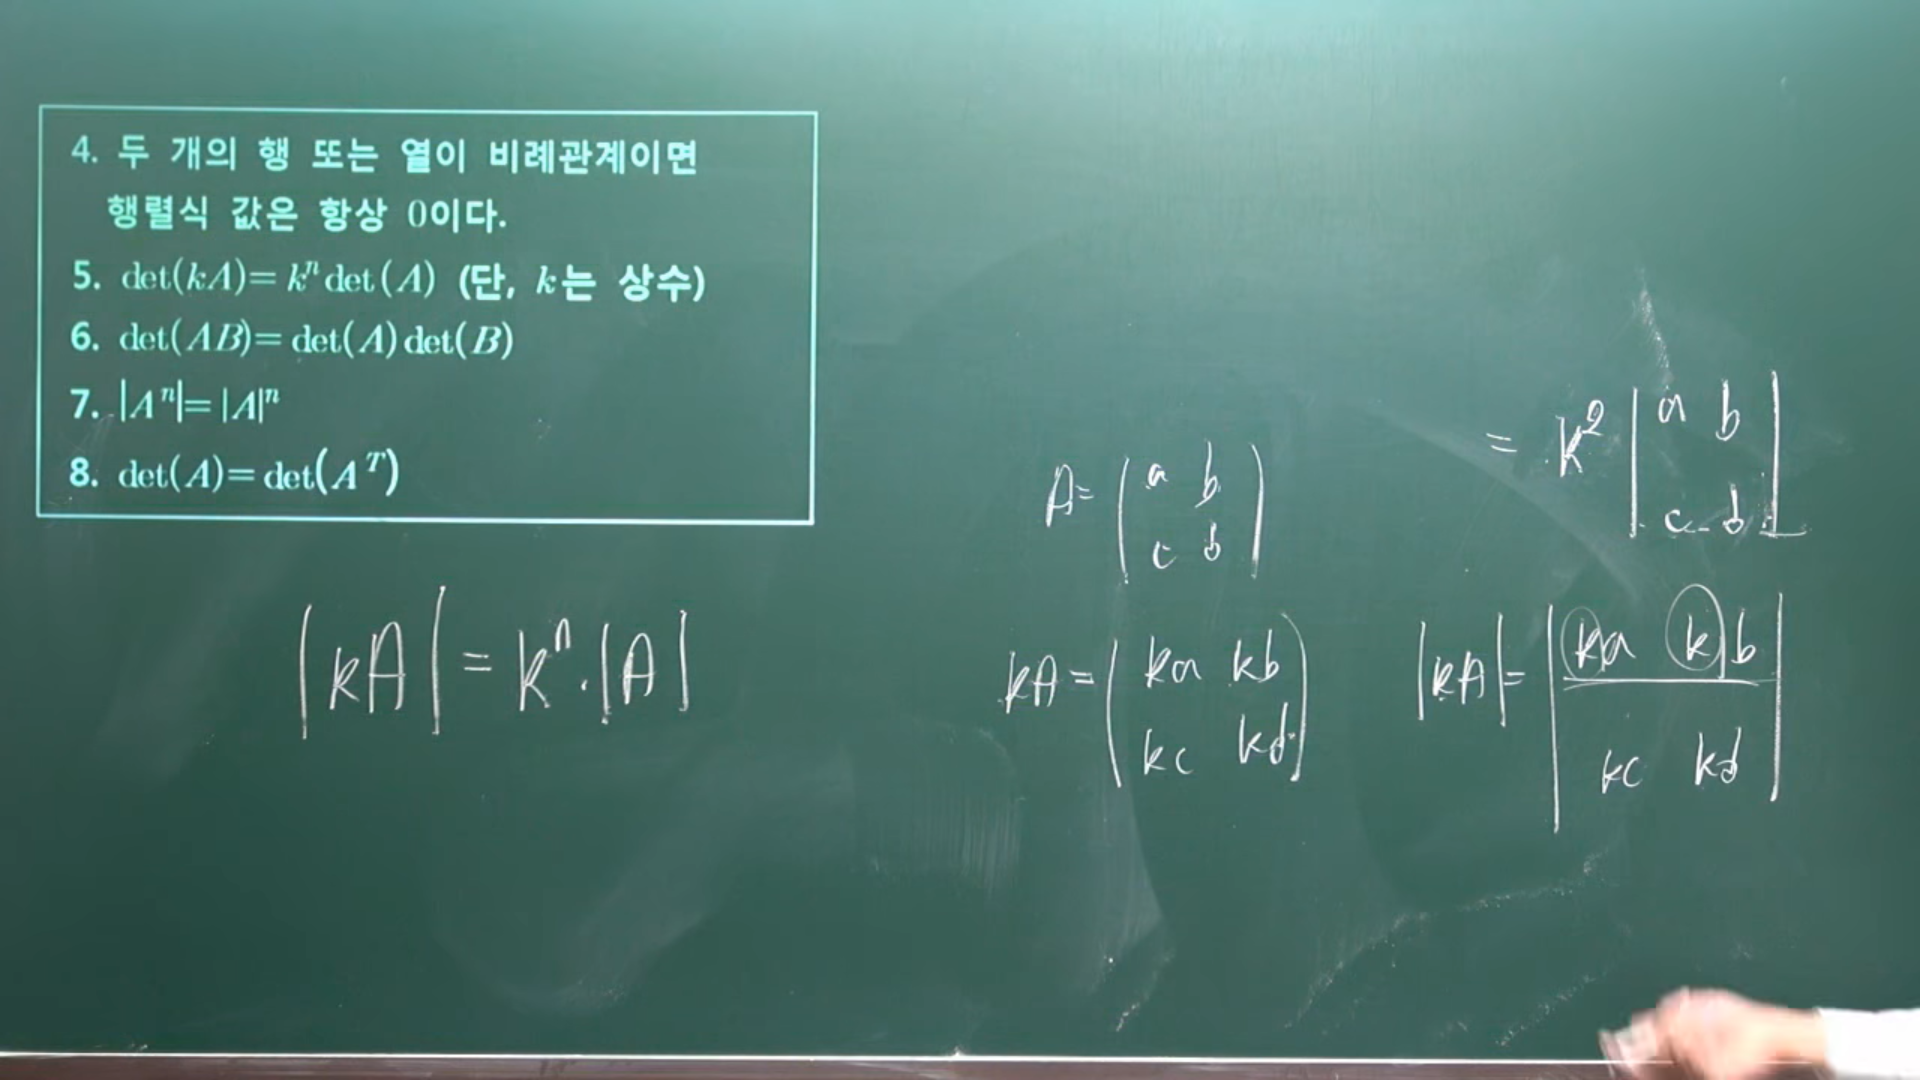 4. 두 개의 행 또는 열이 비례관계이면
행렬식 값은 항상 0이다.
5. det(kA)= kⁿ det(A) (단, k는 상수)
6. det(AB)= det(A)det(B)
7. |Aⁿ|= |A|ⁿ
8. det(A)= det(Aᵀ)
|kA| = kⁿ·|A|
A= ( a b
c d )
kA = ( ka kb
kc kd )
= k² | a b
c d |
|kA| = | ka kb
kc kd |